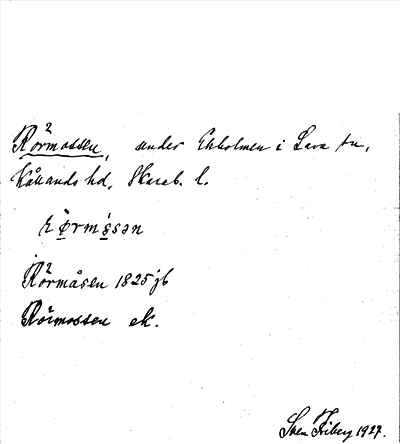 Rörmossen, under Ekholmen i Lava sn,
Kållands hd, Skarab. l.
rørmåsən
Rörmåsen 1825 jb
Rörmossen ek.
Sven Friberg 1927.